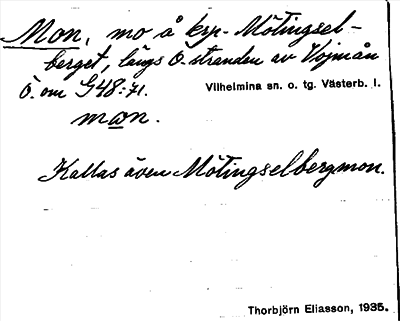 Mon, mo å krp. Mötingsel-
berget, längs ö. stranden av Vojmån
Ö. om G48:71.
Vilhelmina sn. o. tg. Västerb. l.
man.
Kallas även Mötingselbergmon.
Thorbjörn Eliasson, 1935.